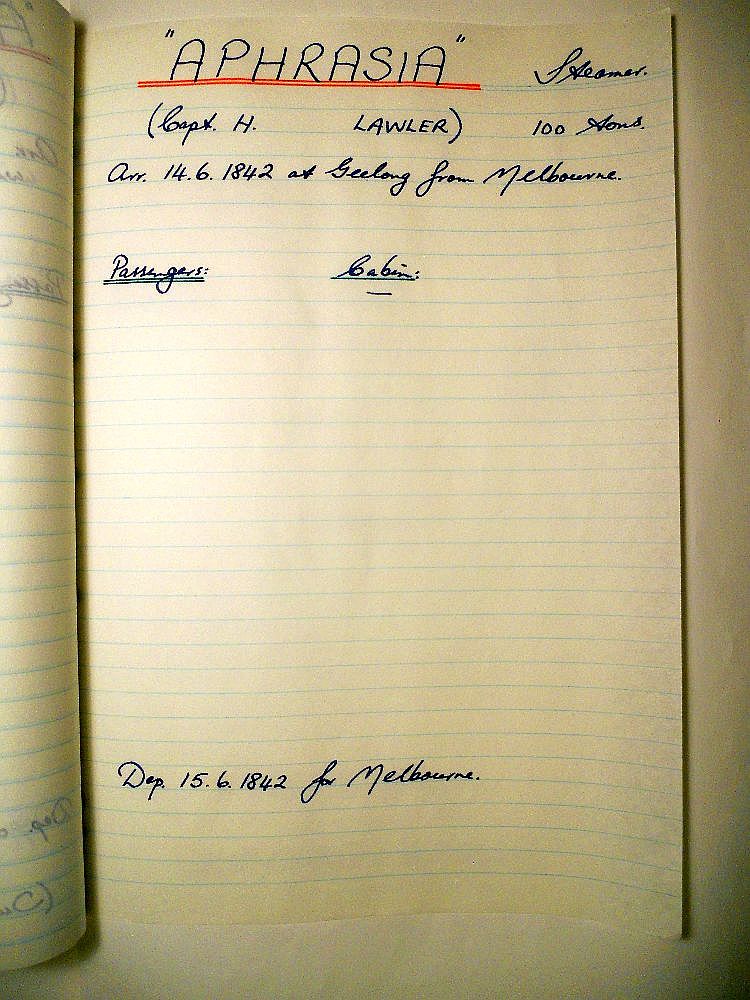 "APHRASIA" Steamer.
(Capt. H. LAWLER) 100 Tons.
Arr. 14.6.1842 at Geelong from Melbourne.
Passengers: Cabin:
Dep. 15.6.1842 for Melbourne.